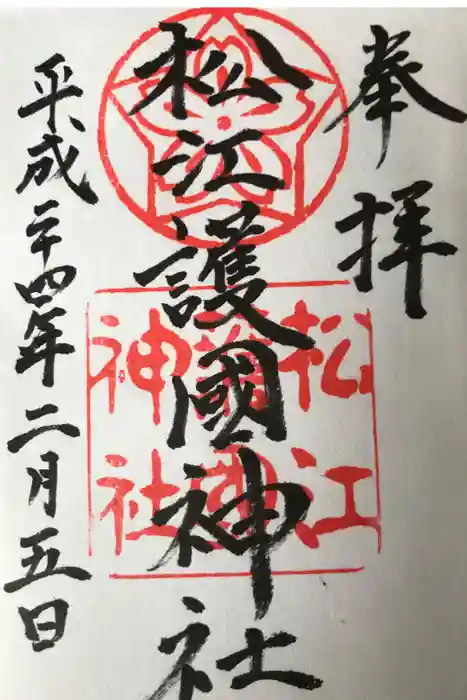 奉拝
松江護國神社
平成二十四年二月五日
松江
護國
神社